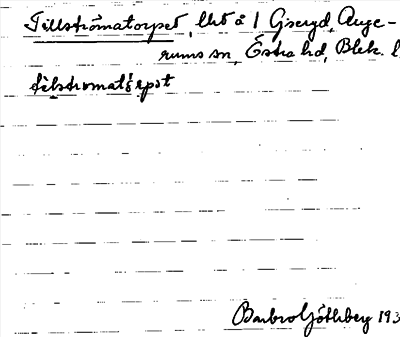 Tillströmatorpet, lht å 1 Gsegd, Auge-
rums sn, Östra hd, Blek. l
tilstromatårpet
Barbro Göthberg 193